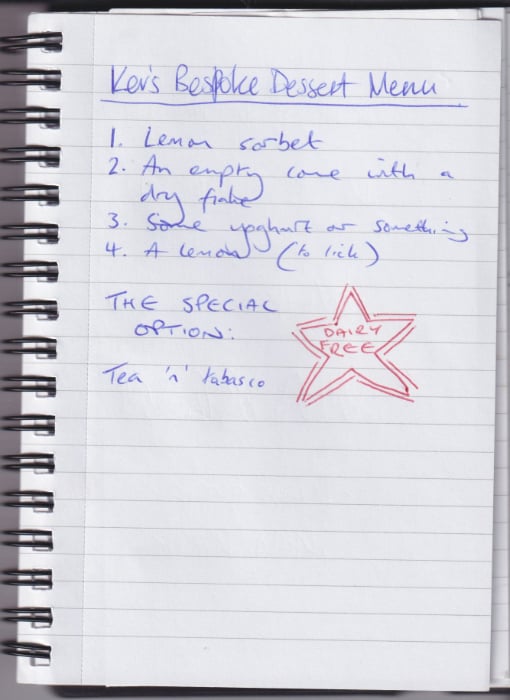 Kev's Bespoke Dessert Menu
1. Lemon sorbet
2. An empty cone with a
dry flake
3. Some yoghurt or something
4. A lemon (to lick)
THE SPECIAL
OPTION:
DAIRY
FREE
Tea 'n' tabasco